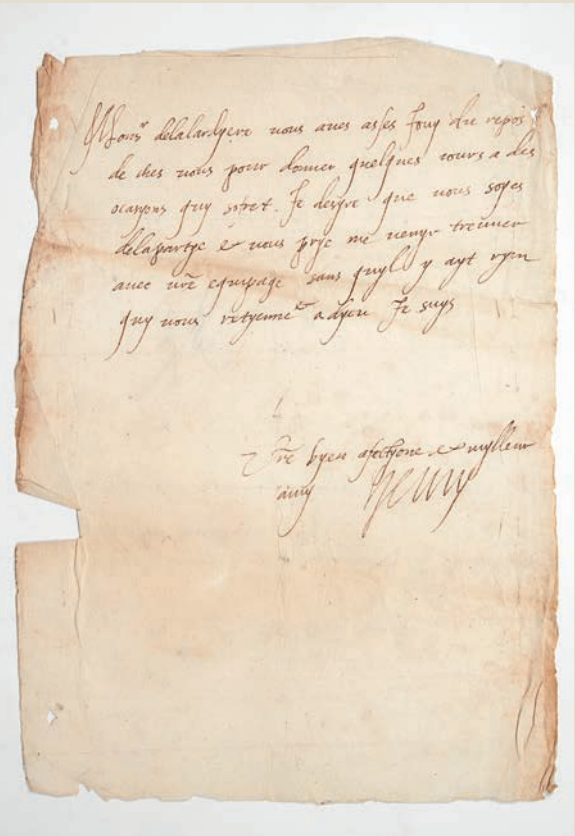 Mons^r delalardyere vous aves asses Jouy du repos
de ches vous pour donner quelques jours a des
ocasyons quy sofret. Je desyre que vous soyes
delapartye & vous prye me venyr treuver
avec vr̄e equipage sans quyl y ayt ryen
quy vous retyenne adyeu Je suys
Vr̄e byen afectyone & mylleur
amy Henry